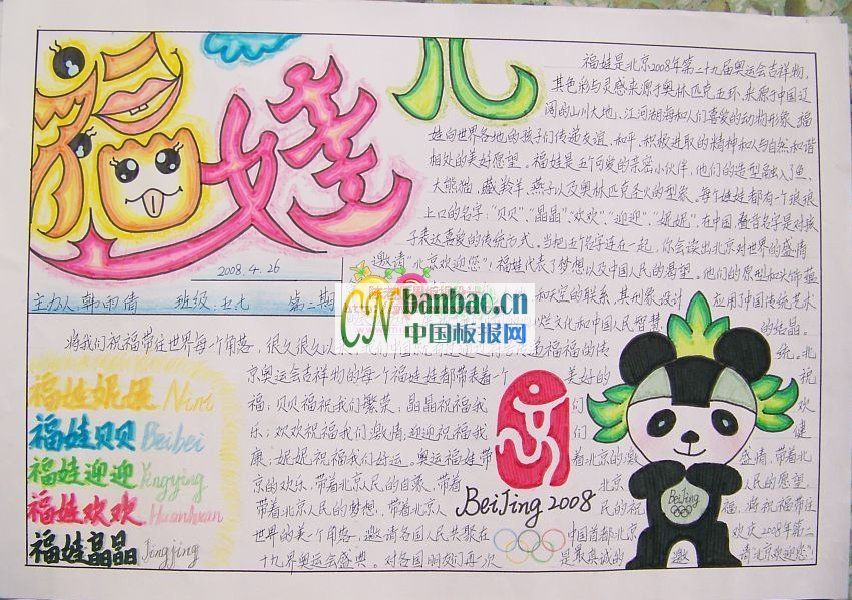 福娃儿
福娃是北京2008年第二十九届奥运会吉祥物,
其色彩与灵感来源于奥林匹克五环,来源于中国辽
阔的山川大地、江河湖海和人们喜爱的动物形象。福
娃向世界各地的孩子们传递友谊、和平、积极进取的精神和人与自然和谐
相处的美好愿望。福娃是五个可爱的亲密小伙伴,他们的造型融入了鱼、
大熊猫、藏羚羊、燕子以及奥林匹克圣火的型象。每个娃娃都有一个琅琅
上口的名字:“贝贝”、“晶晶”、“欢欢”、“迎迎”、“妮妮”,在中国,叠音名字是对孩
子表达喜爱的传统方式。当把五个名字连在一起,你会读出北京对世界的盛情
邀请“北京欢迎您”!福娃代表了梦想以及中国人民的渴望。他们的原型和头饰蕴
和天空的联系,其形象设计应用了中国传统艺术
烂文化和中国人民智慧的结晶。
2008.4.26
主办人:韩雨倩 班级:五七 第二期
CN banbao.cn
中国板报网
将我们祝福带往世界每个角落,很久很久以 福福的传统。北
京奥运会吉祥物的每个福娃娃都带来着一个美好的祝
福:贝贝福祝我们繁荣;晶晶祝福我们欢
乐;欢欢祝福我们激情;迎迎祝福我们健
康;妮妮祝福我们好运。奥运福娃带着北京的激盛情,带着北
京的欢乐,带着北京民的自豪,带着北京人民的愿望
带着北京人民的梦想,带着北京人民的祝福,将祝福带往
世界的美个角落,邀请各国人民共聚在中国首都北京欢庆2008年第二
十九界奥运会盛典。对各国朋友们再次是最真诚的邀请“北京欢迎您”!
福娃妮妮 Nini
福娃贝贝 Beibei
福娃迎迎 Yingying
福娃欢欢 Huanhuan
福娃晶晶 Jingjing
BeiJing 2008
BeiJing